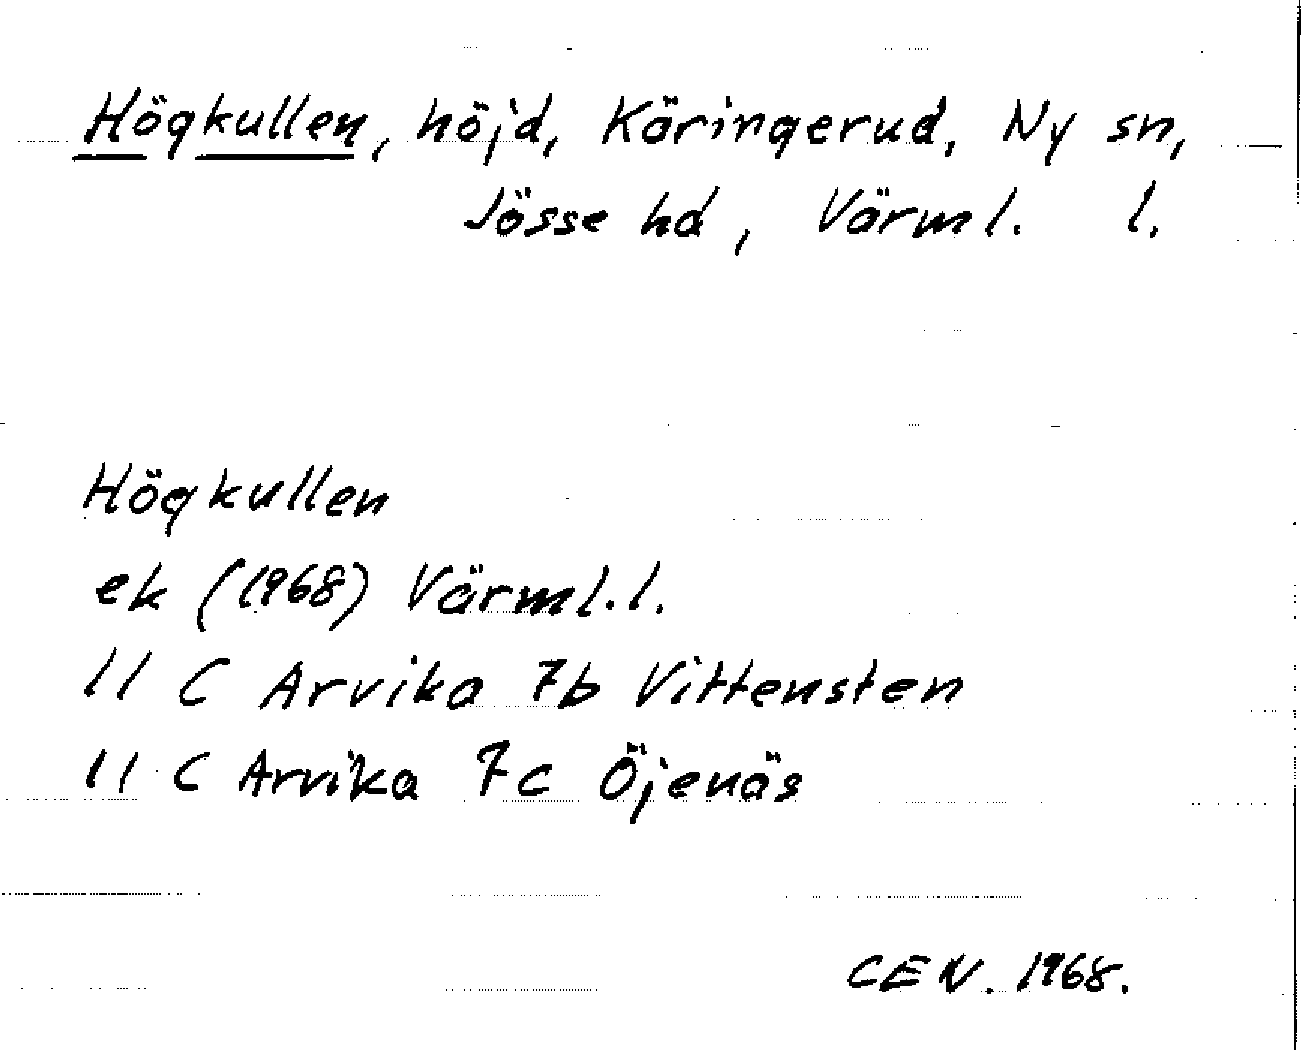 Högkullen, höjd, Käringerud, Ny sn,
Jösse hd, Värml. l.
Högkullen
ek (1968) Värml. l.
11 C Arvika 7b Vittensten
11 C Arvika 7c Öjenäs
CEN. 1968.